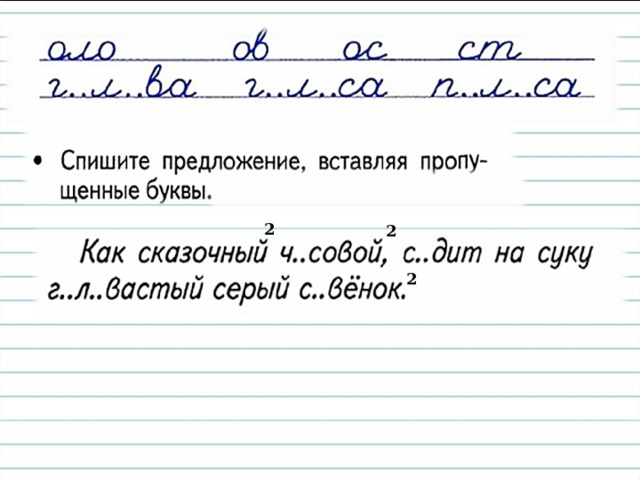 оло ов ос ст
г..л..ва г..л..са п..л..са
• Спишите предложение, вставляя пропу-
щенные буквы.
Как сказочный² ч..совой,² с..дит на суку
г..л..вастый серый с..вёнок.²